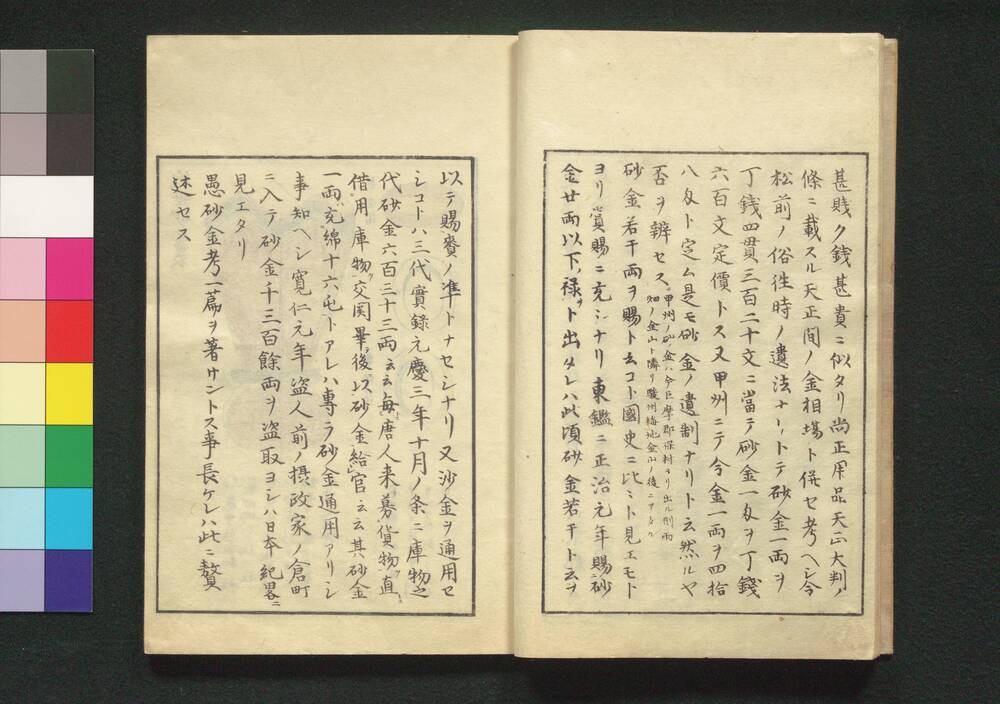 甚賎ク錢甚貴ニ似タリ尚正用品天正大判ノ
條ニ載スル天正間ノ金相場ト併セ考ヘシ今
松前ノ俗徃時ノ遺法ナリトテ砂金一両ヲ
丁錢四貫三百二十文ニ當テ砂金一匁ヲ丁錢
六百文定價トス又甲州ニテ今金一両ヲ四拾
八匁ト定ム是モ砂金ノ遺制ナリト云然ルヤ
否ヲ辨セス甲州ノ砂金ハ今巨摩郡保村ヨリ出ル則雨
畑ノ金山ト隣リ駿州梅地金山ノ後ニアタル
砂金若干両ヲ賜ト云コト國史ニ比々ト見エモト
ヨリ賞賜ニ充シナリ東鑑ニ正治元年賜砂
金廿両以下禄ヲト出タレハ此頃砂金若干ト云ヲ
以テ賜賚ノ凖トナセシナリ又沙金ヲ通用セ
シコトハ三代實録元慶三年十月ノ条ニ庫物之
代砂金六百三十三両云云毎唐人来募貨物直
借用庫物交関畢後以砂金給官云云其砂金
一両充綿十六屯トアレハ専ラ砂金通用アリシ
事知ヘシ寛仁元年盗人前ノ摂政家ノ倉町
ニ入テ砂金千三百餘両ヲ盗取ヨシハ日本紀畧ニ
見エタリ
愚砂金考一篇ヲ著サントス事長ケレハ此ニ贅
述セス